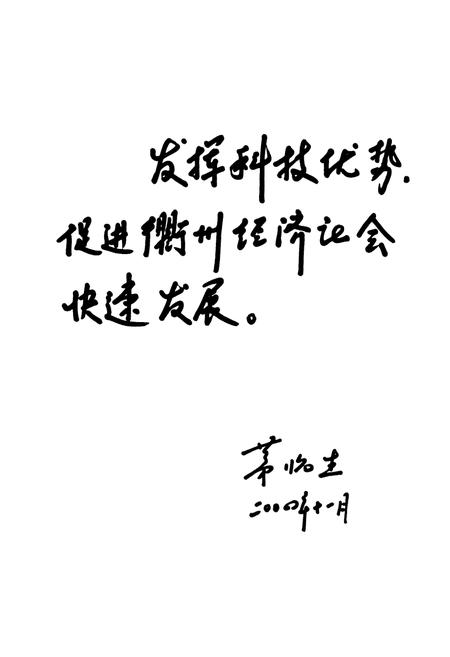 发挥科技优势,
促进衢州经济社会
快速发展。
茅临生
二〇〇四年十一月